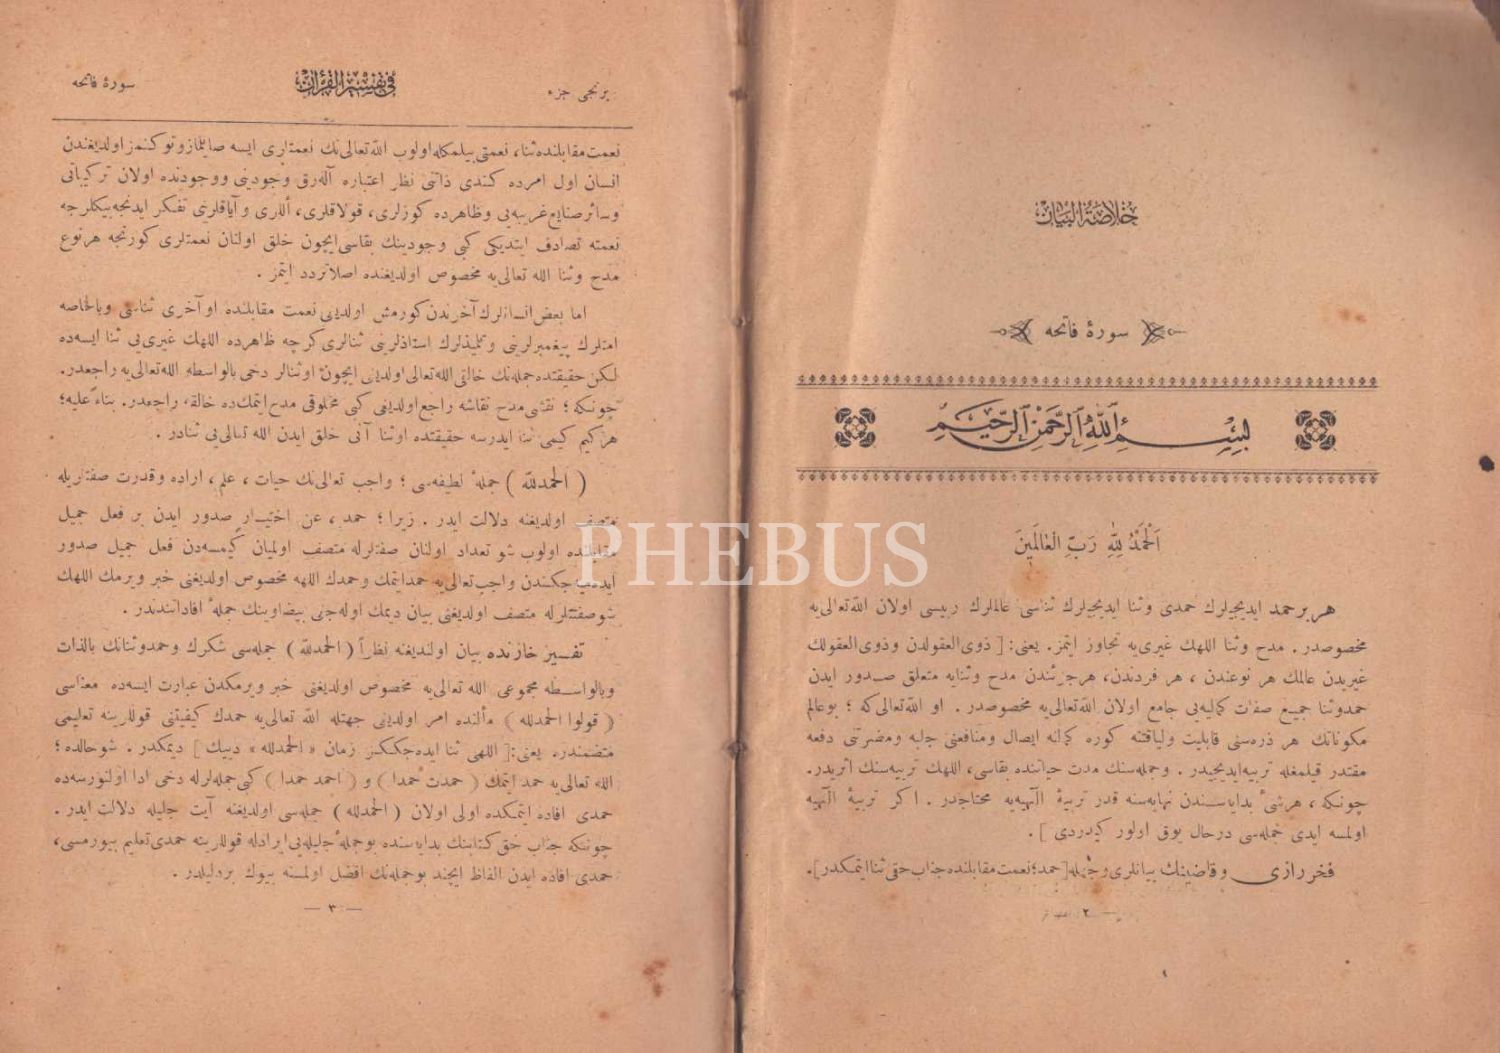 خلاصة البيان
سورۀ فاتحه
بسم الله الرحمن الرحيم
اَلْحَمْدُ لِلّٰهِ رَبِّ الْعَالَمِينَ
هر بر حمد ايديجيلرك حمدى وثنا ايديجيلرك ثناسى عالملرك ربيسى اولان الله تعالى‌يه
مخصوصدر . مدح وثنا اللهك غيرى‌يه تجاوز ايتمز. يعنى: [ ذوى العقولدن وذوى العقولك
غيريدن عالمك هر نوعندن ، هر فردندن، هر جزئندن مدح وثنايه متعلق صدور ايدن
حمدوثنا جميع صفات كماليه‌يى جامع اولان الله تعالى‌يه مخصوصدر . او الله تعالى‌كه ؛ بو عالم
مكوناتك هر ذره‌سنى قابليت ولياقتنه كوره كمالنه ايصال ومنافعنى جلبه ومضرتنى دفعه
مقتدر قيلمغله تربيه ايديجيدر . وجمله‌سنك مدت حياتنده بقاسى، اللهك تربيه‌سنك اثريدر.
چونكه ، هر شئ بدايه‌سندن نهايه‌سنه قدر تربيۀ الٓهيه‌يه محتاجدر . اكر تربيۀ الٓهيه
اولمسه ايدى جمله‌سى درحال يوق اولور كيدردى ] .
فخر رازى وقاضينك بيانلرى وجهله [ حمد ؛ نعمت مقابلنده جناب حقى ثنا ايتمكدر ].
— ٢ —
برنجى جزء
فى تفسير القرآن
سورۀ فاتحه
نعمت مقابلنده ثنا، نعمتى بيلمكله اولوب الله تعالى‌نك نعمتلرى ايسه صايلماز وتوكنمز اولديغندن
انسان اول امرده كندى ذاتنى نظر اعتباره آله‌رق وجودينى ووجودنده اولان تركيباتى
وسائر صنايع غريبه‌يى وظاهرده كوزلرى، قولاقلرى، أللرى وآياقلرينى تفكر ايدنجه بيكلرجه
نعمته تصادف ايتديكى كبى وجودينك بقاسى ايچون خلق اولنان نعمتلرى كورنجه هر نوع
مدح وثنا الله تعالى‌يه مخصوص اولديغنده اصلا تردد ايتمز .
اما بعض انسانلرك آخرندن كورمش اولديى نعمت مقابلنده او آخرى ثناسى وبالخاصه
امتلرك پيغمبرلرينى وتلميذلرك استاذلرينى ثنالرى كرچه ظاهرده اللهك غيرى‌يى ثنا ايسه‌ده
لكن حقيقتده جمله‌نك خالقى الله تعالى اولديى ايچون او ثنالر دخى بالواسطه الله تعالى‌يه راجعدر.
چونكه ؛ نقشى مدح نقاشه راجع اولديغى كبى مخلوقى مدح ايتمك‌ده خالقه راجعدر. بناءً عليه ؛
هر كيم كيمى ثنا ايدرسه حقيقتده او ثنا آنى خلق ايدن الله تعالى‌يى ثنادر .
( الحمدلله ) جملۀ لطيفه‌سى ؛ واجب تعالى‌نك حيات ، علم ، اراده وقدرت صفتلريله
متصف اولديغنه دلالت ايدر . زيرا ؛ حمد ، عن اختيار صدور ايدن بر فعل جميل
مقابلنده اولوب شو تعداد اولنان صفتلرله متصف اولميان كيمسه‌دن فعل جميل صدور
ايده‌ميه‌جكندن واجب تعالى‌يه حمد ايتمك وحمدك اللهه مخصوص اولديغنى خبر ويرمك اللهك
شو صفتلرله متصف اولديغنى بيان ديمك اوله‌جغى بيضاوينك جملۀ افاداتندندر .
تفسير خازنده بيان اولنديغنه نظراً ( الحمدلله ) جمله‌سى شكرك وحمدوثنانك بالذات
وبالواسطه مجموعى الله تعالى‌يه مخصوص اولديغنى خبر ويرمكدن عبارت ايسه‌ده معناسى
( قولوا الحمدلله ) مآلنده امر اولديى جهتله الله تعالى‌يه حمدك كيفيتنى قوللرينه تعليمى
متضمندر. يعنى: [ اللهى ثنا ايده‌جككز زمان «الحمدلله» دييك ] ديمكدر . شو حالده ؛
الله تعالى‌يه حمد ايتمك ( حمدت حمدا ) و ( احمد حمدا ) كبى جمله‌لرله دخى ادا اولنورسه‌ده
حمدى افاده ايتمكده اولى اولان ( الحمدلله ) جمله‌سى اولديغنه آيت جليله دلالت ايدر .
چونكه جناب حق كتابنك بدايه‌سنده بو جملۀ جليله‌يى ايرادله قوللرينه حمدى تعليم بيورمسى،
حمدى افاده ايدن الفاظ ايچنده بو جمله‌نك افضل اولمسنه بيوك بر دليلدر.
— ٣ —
PHEBUS